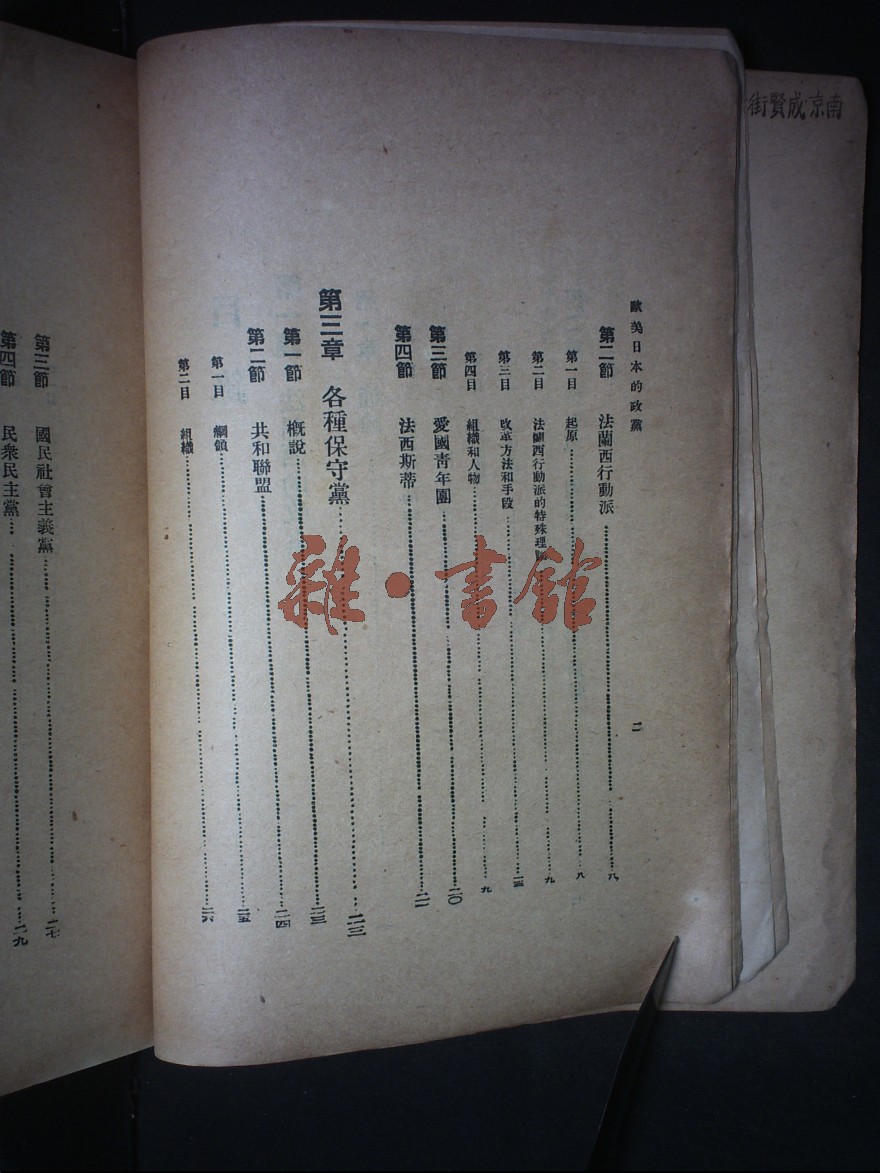 歐美日本的政黨
二
第二節 法蘭西行動派 八
第一目 起原 八
第二目 法蘭西行動派的特殊理 九
第三目 改革方法和手段
第四目 組織和人物 九
第三節 愛國靑年團 二〇
第四節 法西斯蒂 二一
第三章 各種保守黨 二三
第一節 概說 二三
第二節 共和聯盟 二四
第一目 綱領 二五
第二目 組織 二六
第三節 國民社會主義黨 二七
第四節 民衆民主黨 二九
南京成賢街
雜·書館